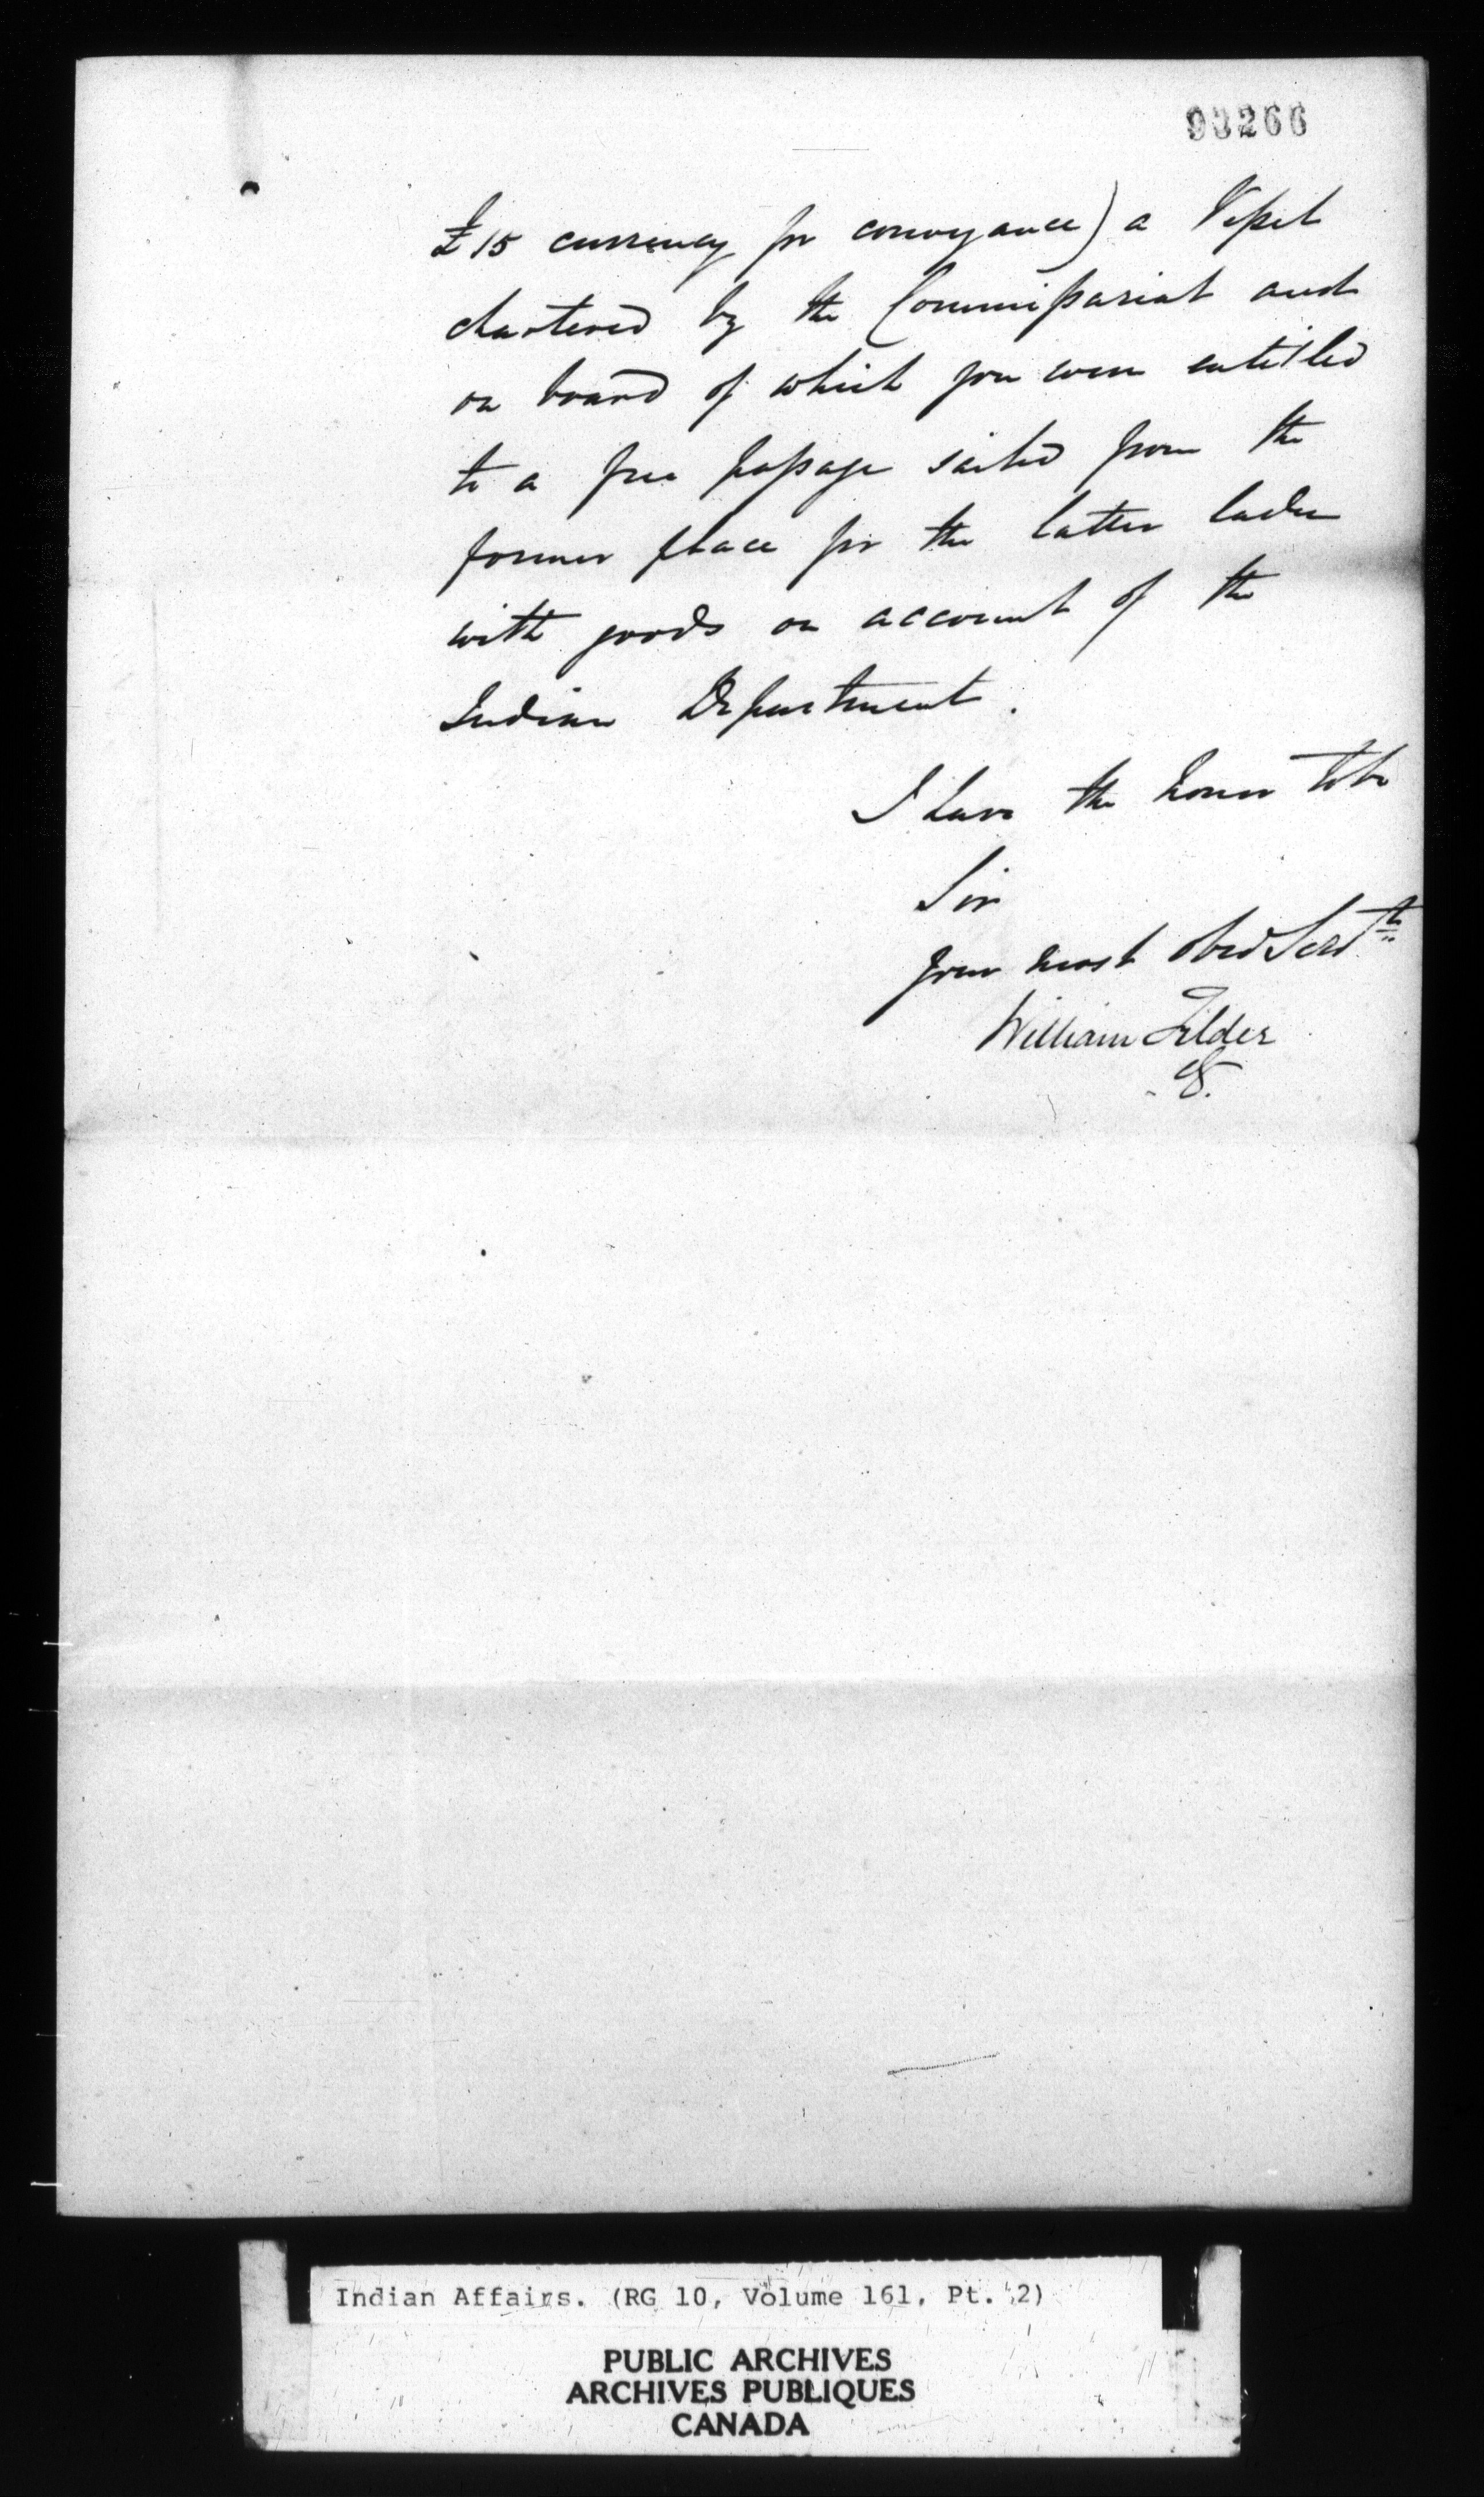 93266
£15 currency for conveyance) a Vessel
chartered by the Commissariat and
on board of which you were entitled
to a free passage sailed from the
former place for the latter laden
with goods on account of the
Indian Department.
I have the honor to be
Sir
your most obed Servt
William Filder
Indian Affairs. (RG 10, Volume 161, Pt. 2)
PUBLIC ARCHIVES
ARCHIVES PUBLIQUES
CANADA